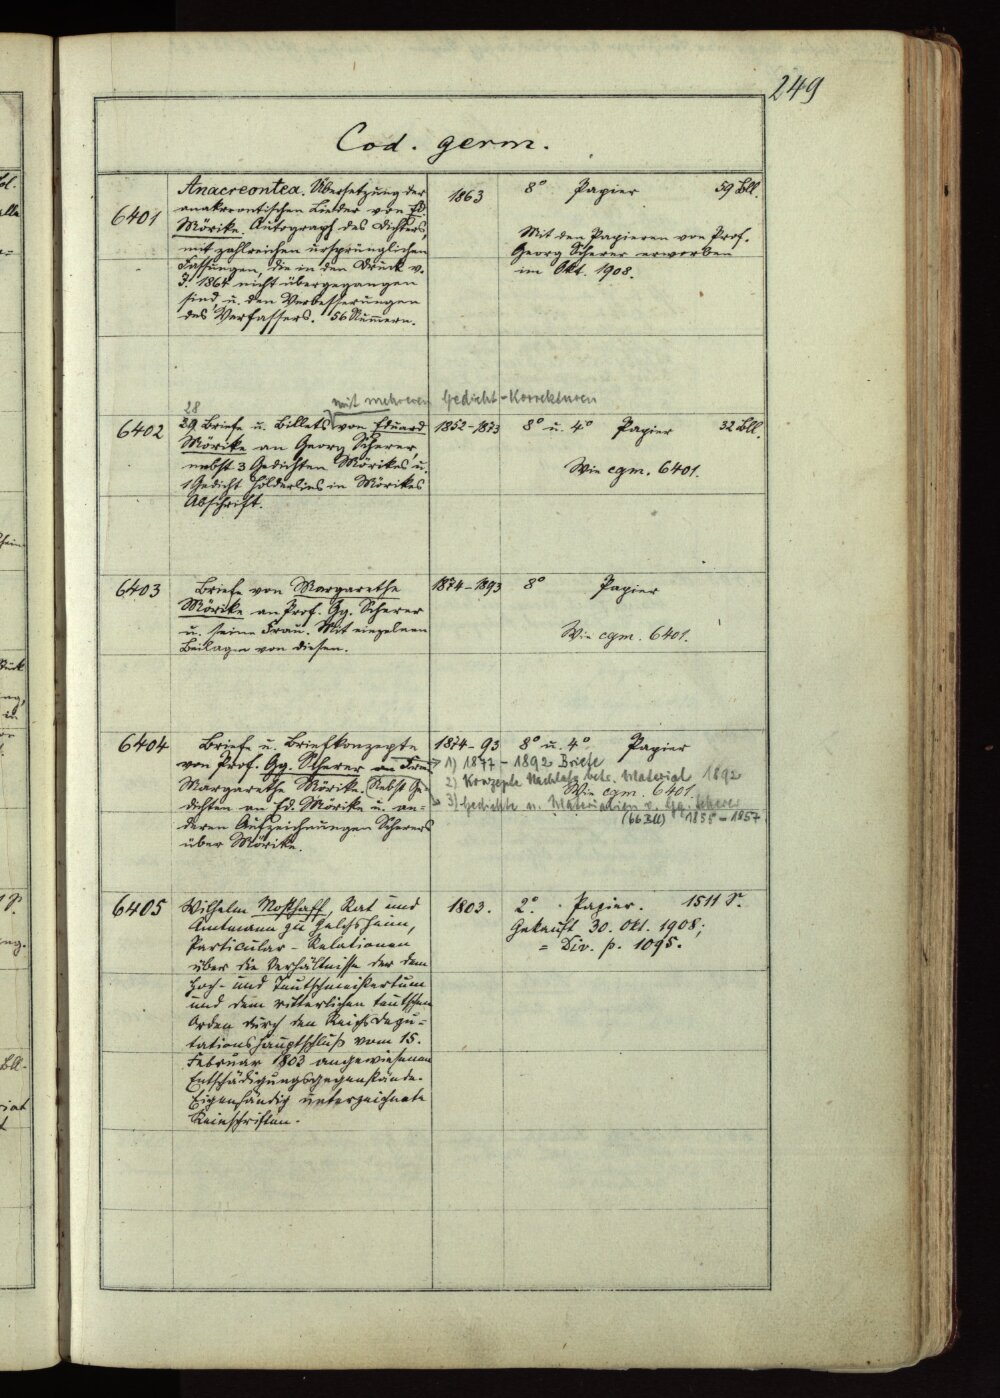 249
Cod. germ.
6401
Anacreontea. Übersetzung der
anakreontischen Lieder von Ed.
Mörike. Autograph des Dichters,
mit zahlreichen ursprünglichen
Fassungen, die in den Druck v.
J. 1864 nicht übergegangen
sind, u. den Verbesserungen
des Verfassers. 56 Nummern.
1863
8° Papier 59 Bll.
Mit den Papieren von Prof.
Georg Scherer erworben
im Okt. 1908.
mit mehreren Gedicht-Korrekturen
28
6402
29 Briefe u. Billets von Eduard
Mörike an Georg Scherer,
nebst 3 Gedichten Mörikes u.
1 Gedicht Hölderlins in Mörikes
Abschrift.
1852-1873
8° u. 4° Papier 32 Bll.
Wie cgm. 6401.
6403
Briefe von Margarethe
Mörike an Prof. Gg. Scherer
u. seine Frau. Mit einzelnen
Beilagen von diesen.
1874-1893
8° Papier
Wie cgm. 6401.
6404
Briefe u. Briefkonzepte
von Prof. Gg. Scherer an Frau
Margarethe Mörike. (Nebst Ge-
dichten an Ed. Mörike u. an-
deren Aufzeichnungen Scherers
über Mörike.
1874-93
8° u. 4° Papier
1) 1877-1892 Briefe
2) Konzepte Nachlaß betr. Material 1892
Wie cgm. 6401
3) Gedichte u. Materialien v. Gg. Scherer
(66 Bll) 1855-1857
6405
Wilhelm Mosthaff, Rat und
Amtmann zu Gelchsheim,
Particular-Relationen
über die Verhältnisse der dem
Hoch- und Teutschmeistertum
und dem ritterlichen teutschen
Orden durch den Reichsdepu-
tationshauptschluß vom 15.
Februar 1803 angewiesenen
Entschädigungsgegenstände.
Eigenhändig unterzeichnete
Reinschriften.
1803.
2° Papier. 1511 S.
Gekauft 30. Okt. 1908;
= Div. p. 1095.